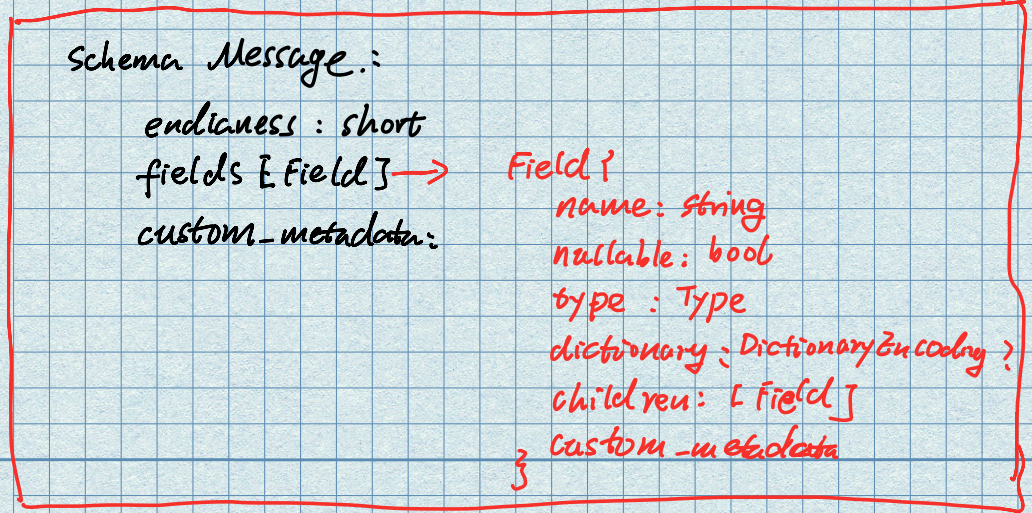 Schema Message.:
endianess : short
fields [Field]
custom_metadata:
Field {
name: string
nullable: bool
type : Type
dictionary: DictionaryEncoding ?
children: [Field]
custom_metadata
}